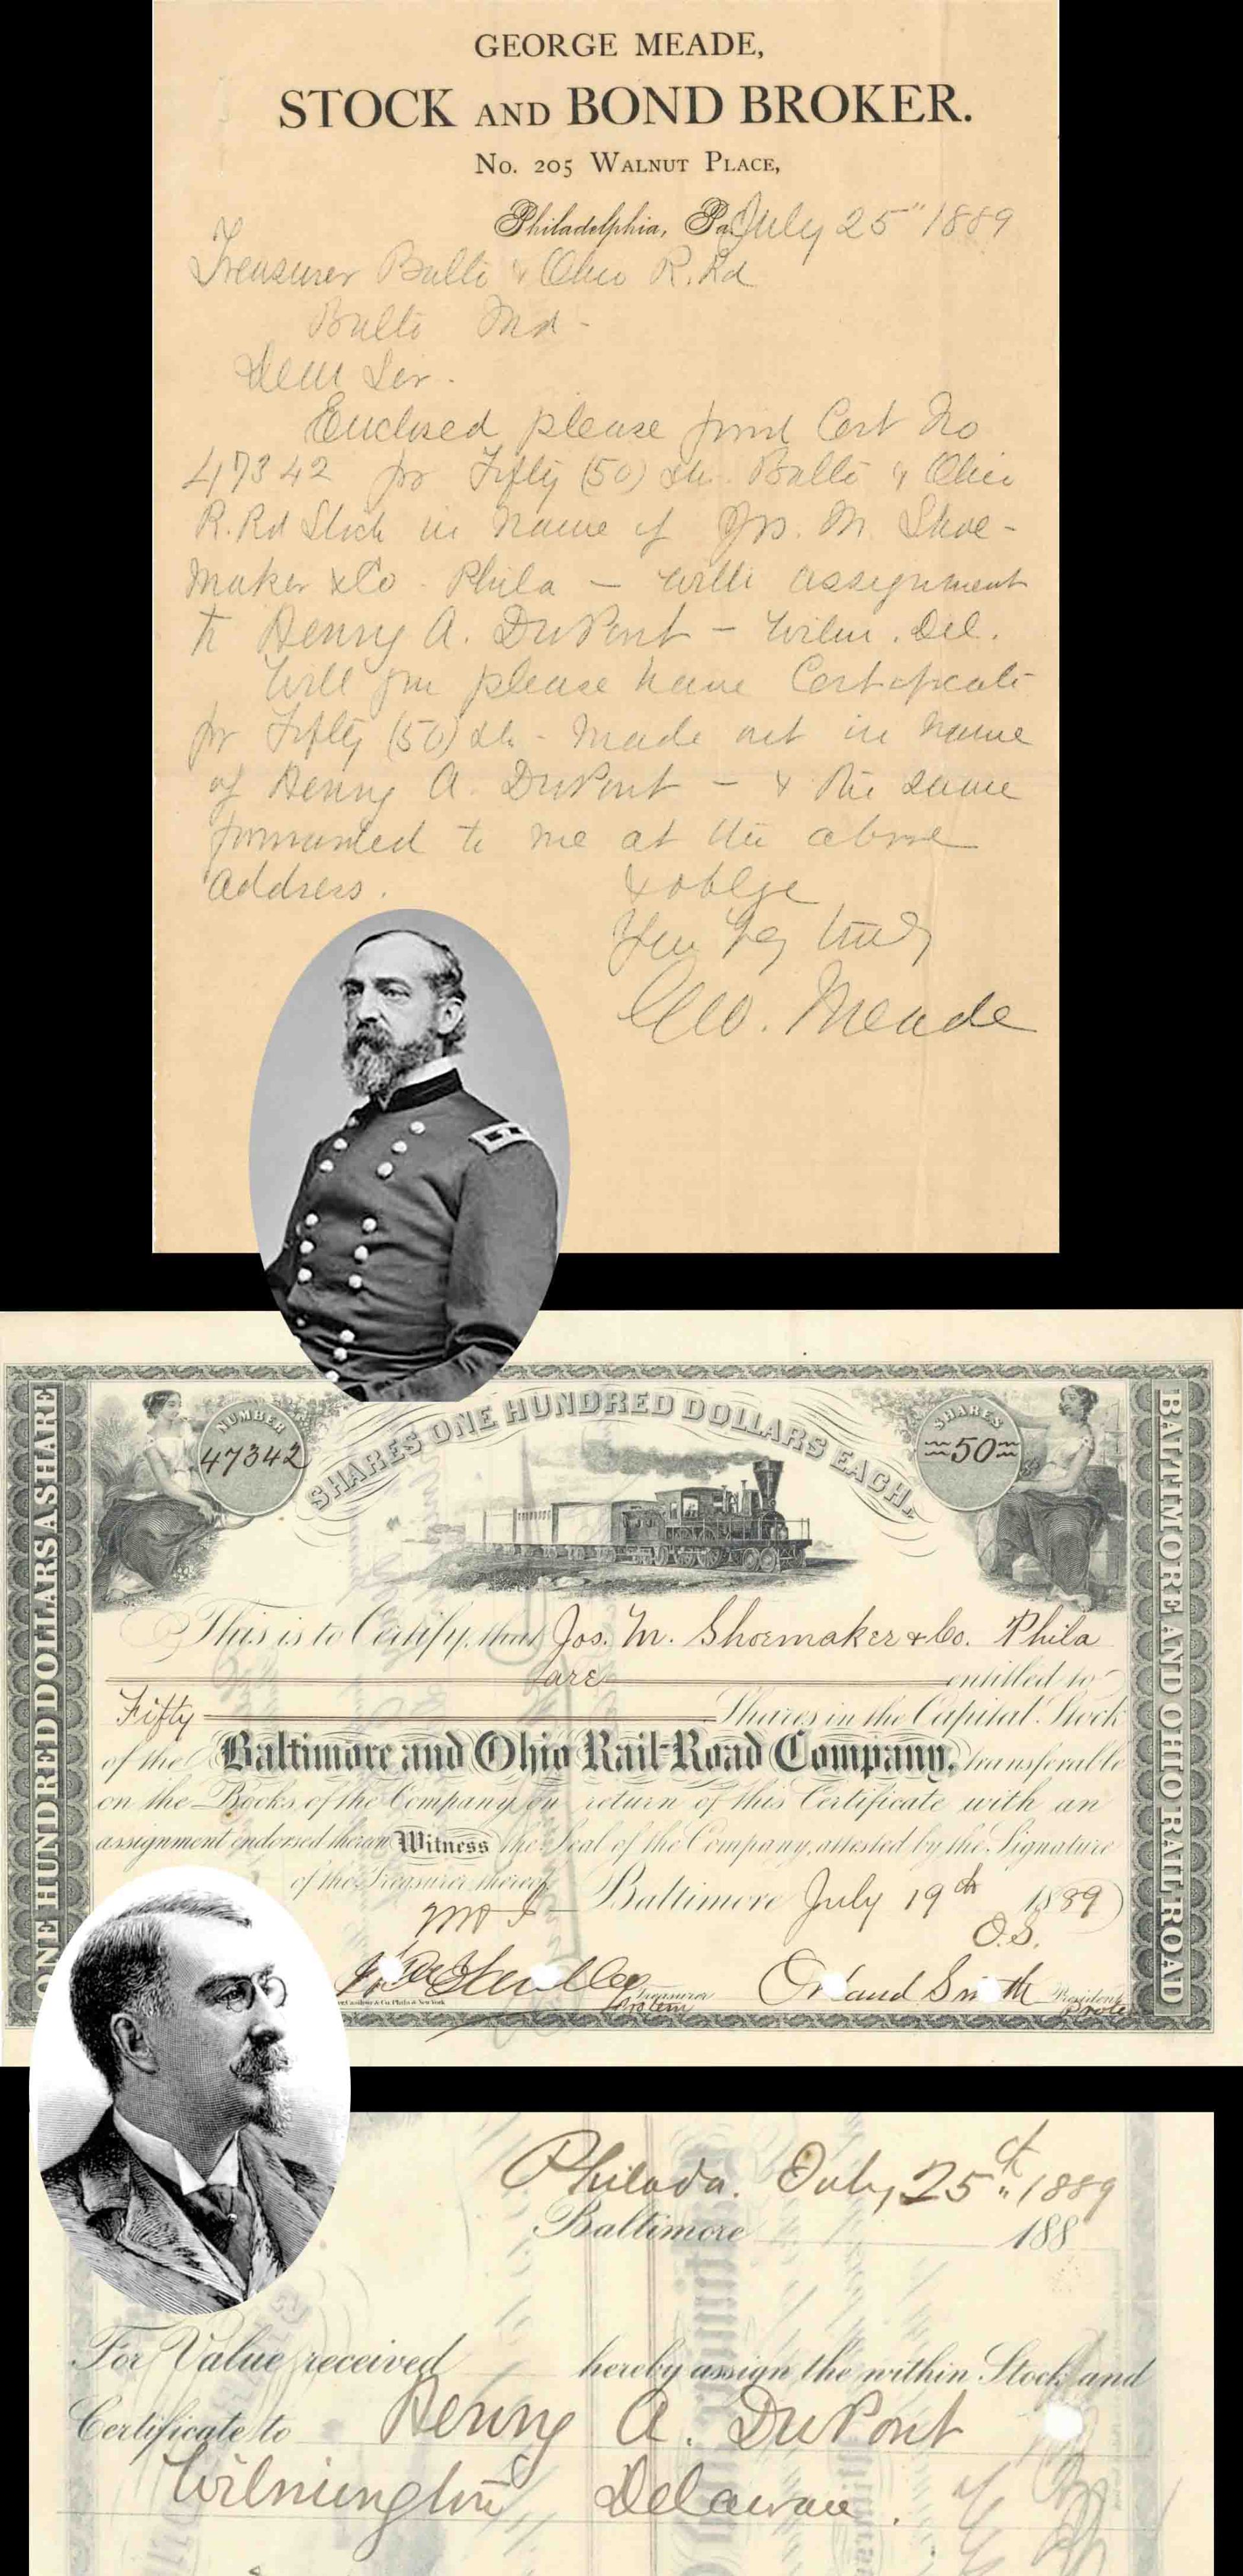 GEORGE MEADE,
STOCK AND BOND BROKER.
No. 205 Walnut Place,
Philadelphia, Pa. July 25" 1889
Treasurer Balto & Ohio R. Rd
Balto Md -
Dear Sir.
Enclosed please find Cert No
47342 for Fifty (50) sh. Balto & Ohio
R. Rd Stock in name of Jos. M. Shoe-
maker & Co - Phila - with assignment
to Henry A. DuPont - Wilm. Del.
Will you please have Certificate
for Fifty (50) sh - made out in name
of Henry A. DuPont - & the same
forwarded to me at the above
address.
& oblge
Geo. Meade
NUMBER
47342
SHARES ONE HUNDRED DOLLARS EACH.
SHARES
50
ONE HUNDRED DOLLARS A SHARE
BALTIMORE AND OHIO RAILROAD
This is to Certify, that Jos. M. Shoemaker & Co. Phila
are entitled to
Fifty Shares in the Capital Stock
of the Baltimore and Ohio Rail-Road Company, transferable
on the Books of the Company on return of this Certificate with an
assignment endorsed thereon Witness the Seal of the Company, attested by the Signature
of the Treasurer thereof.
Baltimore July 19th 1889
O.S.
Treasurer
protem
Orland Smith President
Philada. July 25th 1889
Baltimore 188
For Value received hereby assign the within Stock and
Certificate to Henry A. DuPont
Wilmington Delaware.